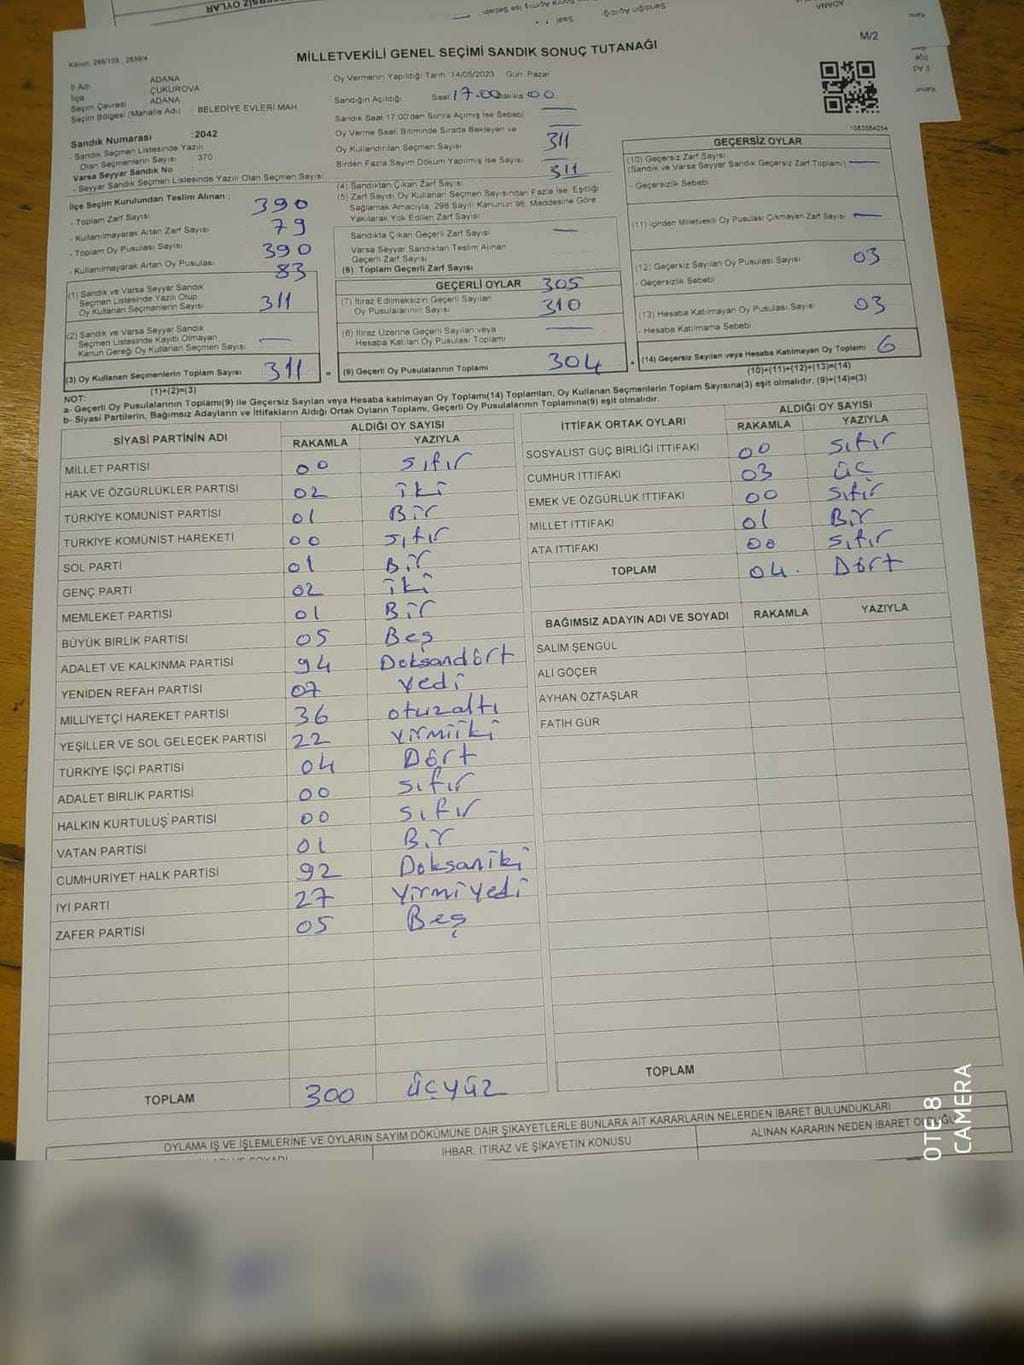 MİLLETVEKİLİ GENEL SEÇİMİ SANDIK SONUÇ TUTANAĞI
M/2
İl Adı ADANA
İlçe ÇUKUROVA
Seçim Çevresi ADANA
Seçim Bölgesi (Mahalle Adı) : BELEDİYE EVLERİ MAH
Sandık Numarası : 2042
- Sandık Seçmen Listesinde Yazılı
Olan Seçmenlerin Sayısı 370
Varsa Seyyar Sandık No
- Seyyar Sandık Seçmen Listesinde Yazılı Olan Seçmen Sayısı
İlçe Seçim Kurulundan Teslim Alınan ;
- Toplam Zarf Sayısı 390
- Kullanılmayarak Artan Zarf Sayısı 79
- Toplam Oy Pusulası Sayısı 390
- Kullanılmayarak Artan Oy Pusulası 83
(1) Sandık ve Varsa Seyyar Sandık
Seçmen Listesinde Yazılı Olup
Oy Kullanan Seçmenlerin Sayısı 311
(2) Sandık ve Varsa Seyyar Sandık
Seçmen Listesinde Kayıtlı Olmayan
Kanun Gereği Oy Kullanan Seçmen Sayısı —
(3) Oy Kullanan Seçmenlerin Toplam Sayısı 311
(1)+(2)=(3)
Oy Vermenin Yapıldığı Tarih 14/05/2023 Gün Pazar
Sandığın Açıldığı Saat 17.00 Dakika 00
Sandık Saat 17.00'den Sonra Açılmış İse Sebebi —
Oy Verme Saati Bitiminde Sırada Bekleyen ve
Oy Kullandırılan Seçmen Sayısı 311
Birden Fazla Sayım Döküm Yapılmış İse Sayısı
(4) Sandıktan Çıkan Zarf Sayısı 311
(5) Zarf Sayısı Oy Kullanan Seçmen Sayısından Fazla İse, Eşitliği
Sağlamak Amacıyla, 298 Sayılı Kanunun 98. Maddesine Göre
Yakılarak Yok Edilen Zarf Sayısı
Sandıkta Çıkan Geçerli Zarf Sayısı —
Varsa Seyyar Sandıktan Teslim Alınan
Geçerli Zarf Sayısı
(6) Toplam Geçerli Zarf Sayısı
GEÇERLİ OYLAR 305
(7) İtiraz Edilmeksizin Geçerli Sayılan
Oy Pusulalarının Sayısı 310
(8) İtiraz Üzerine Geçerli Sayılan veya
Hesaba Katılan Oy Pusulası Toplamı —
= (9) Geçerli Oy Pusulalarının Toplamı 304
1083584254
GEÇERSİZ OYLAR
(10) Geçersiz Zarf Sayısı
(Sandık ve Varsa Seyyar Sandık Geçersiz Zarf Toplamı) —
- Geçersizlik Sebebi
(11) İçinden Milletvekili Oy Pusulası Çıkmayan Zarf Sayısı —
(12) Geçersiz Sayılan Oy Pusulası Sayısı 03
- Geçersizlik Sebebi
(13) Hesaba Katılmayan Oy Pusulası Sayısı 03
- Hesaba Katılmama Sebebi
+ (14) Geçersiz Sayılan veya Hesaba Katılmayan Oy Toplamı 6
(10)+(11)+(12)+(13)=(14)
NOT:
a- Geçerli Oy Pusulalarının Toplamı(9) ile Geçersiz Sayılan veya Hesaba Katılmayan Oy Toplamı(14) Toplamları, Oy Kullanan Seçmenlerin Toplam Sayısına(3) eşit olmalıdır. (9)+(14)=(3)
b- Siyasi Partilerin, Bağımsız Adayların ve İttifakların Aldığı Ortak Oyların Toplamı, Geçerli Oy Pusulalarının Toplamına(9) eşit olmalıdır.
SİYASİ PARTİNİN ADI ALDIĞI OY SAYISI
RAKAMLA YAZIYLA
MİLLET PARTİSİ 00 sıfır
HAK VE ÖZGÜRLÜKLER PARTİSİ 02 iki
TÜRKİYE KOMÜNİST PARTİSİ 01 Bir
TÜRKİYE KOMÜNİST HAREKETİ 00 sıfır
SOL PARTİ 01 Bir
GENÇ PARTİ 02 iki
MEMLEKET PARTİSİ 01 Bir
BÜYÜK BİRLİK PARTİSİ 05 Beş
ADALET VE KALKINMA PARTİSİ 94 Doksandört
YENİDEN REFAH PARTİSİ 07 yedi
MİLLİYETÇİ HAREKET PARTİSİ 36 otuzaltı
YEŞİLLER VE SOL GELECEK PARTİSİ 22 yirmiiki
TÜRKİYE İŞÇİ PARTİSİ 04 Dört
ADALET BİRLİK PARTİSİ 00 sıfır
HALKIN KURTULUŞ PARTİSİ 00 sıfır
VATAN PARTİSİ 01 Bir
CUMHURİYET HALK PARTİSİ 92 Doksaniki
İYİ PARTİ 27 yirmiyedi
ZAFER PARTİSİ 05 Beş
TOPLAM 300 üçyüz
İTTİFAK ORTAK OYLARI ALDIĞI OY SAYISI
RAKAMLA YAZIYLA
SOSYALİST GÜÇ BİRLİĞİ İTTİFAKI 00 sıfır
CUMHUR İTTİFAKI 03 üç
EMEK VE ÖZGÜRLÜK İTTİFAKI 00 sıfır
MİLLET İTTİFAKI 01 Bir
ATA İTTİFAKI 00 sıfır
TOPLAM 04. Dört
BAĞIMSIZ ADAYIN ADI VE SOYADI RAKAMLA YAZIYLA
SALİM ŞENGÜL
ALİ GÖÇER
AYHAN ÖZTAŞLAR
FATİH GÜR
TOPLAM
OYLAMA İŞ VE İŞLEMLERİNE VE OYLARIN SAYIM DÖKÜMÜNE DAİR ŞİKAYETLERLE BUNLARA AİT KARARLARIN NELERDEN İBARET BULUNDUKLARI
İHBAR, İTİRAZ VE ŞİKAYETİN KONUSU
ALINAN KARARIN NEDEN İBARET OLDUĞU
OTE 8
CAMERA